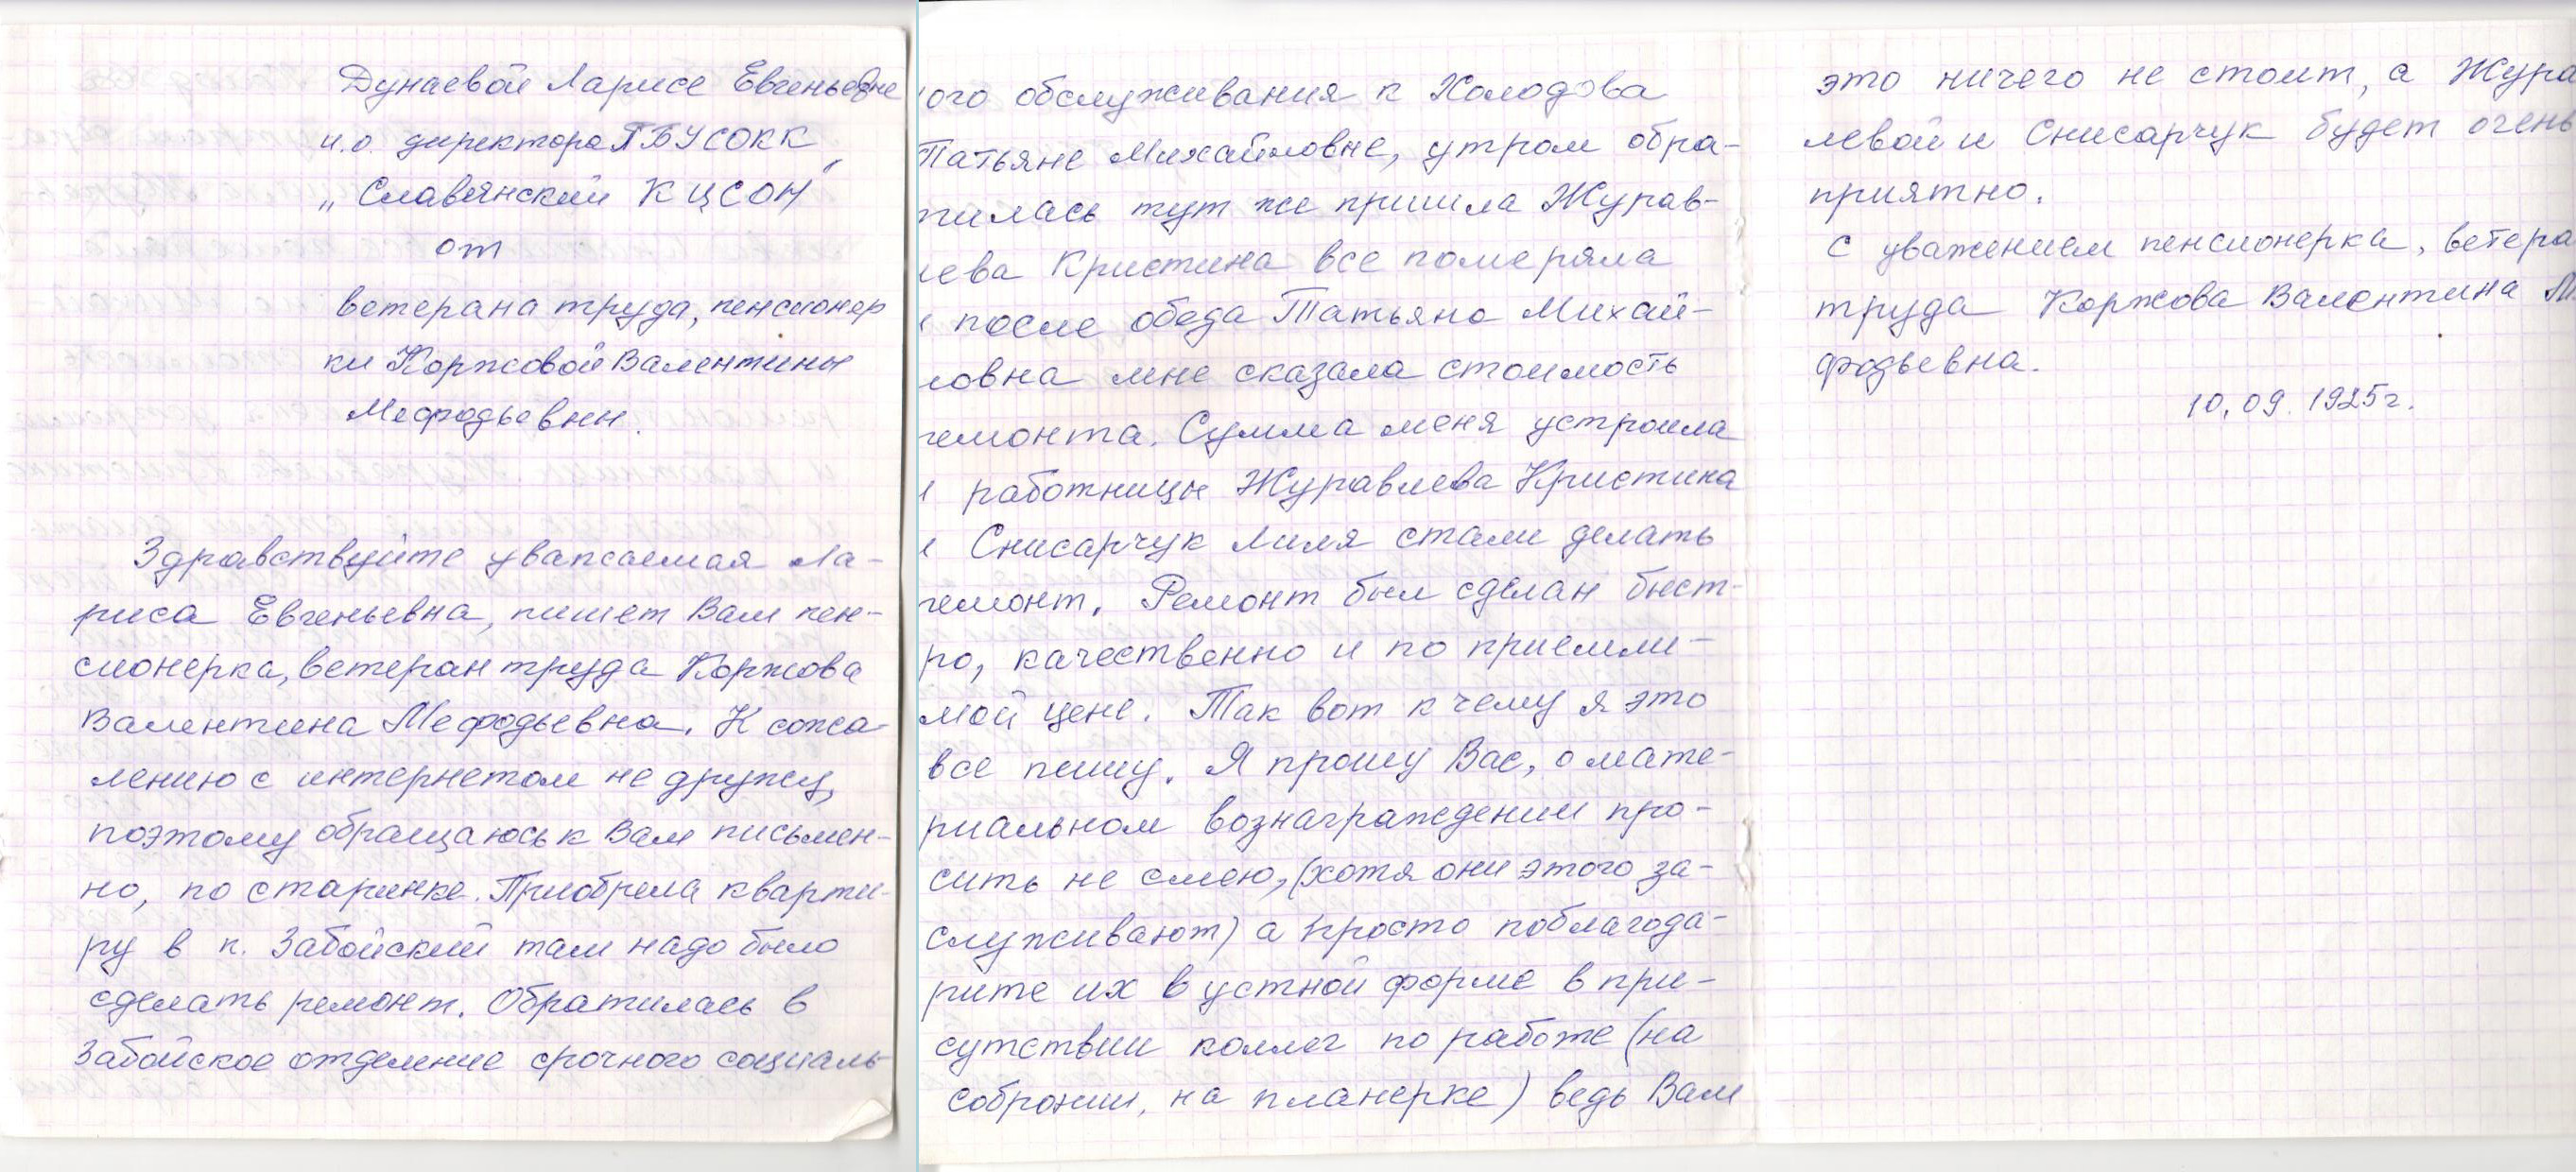 Дунаевой Ларисе Евгеньевне
и.о. директора ГБУСОКК
„Славянский КЦСОН"
от
ветерана труда, пенсионер
ки Коржовой Валентины
Мефодьевны.
Здравствуйте уважаемая Ла-
риса Евгеньевна, пишет Вам пен-
сионерка, ветеран труда Коржова
Валентина Мефодьевна. К сожа-
лению с интернетом не дружу,
поэтому обращаюсь к Вам письмен-
но, по старинке. Приобрела кварти-
ру в п. Забойский там надо было
сделать ремонт. Обратилась в
Забойское отделение срочного социаль-
ого обслуживания к Холодова
Татьяне Михайловне, утром обра-
тилась тут же пришла Журав-
лева Кристина все померяла
и после обеда Татьяна Михай-
ловна мне сказала стоимость
ремонта. Сумма меня устроила
и работницы Журавлева Кристина
и Снисарчук Лиля стали делать
ремонт. Ремонт был сделан быст-
ро, качественно и по приемли-
мой цене. Так вот к чему я это
все пишу. Я прошу Вас, о мате-
риальном вознаграждении про-
сить не смею, (хотя они этого за-
служивают) а просто поблагода-
рите их в устной форме в при-
сутствии коллег по работе (на
собрании, на планерке) ведь Вам
это ничего не стоит, а Жура
левой и Снисарчук будет очень
приятно.
С уважением пенсионерка, ветера
труда Коржова Валентина М
фодьевна.
10.09.1925г.